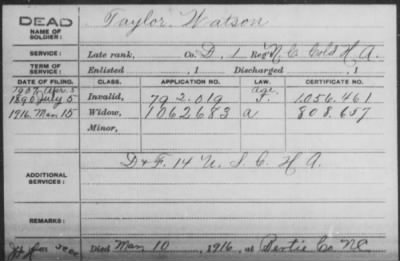 DEAD
NAME OF SOLDIER:
Taylor Watson
SERVICE:
Late rank, Co. D, 1 Reg't N.C. Cold H.A.
TERM OF SERVICE
Enlisted , 1 Discharged , 1
DATE OF FILING. CLASS. APPLICATION NO. LAW. CERTIFICATE NO.
1907 Apr. 5 age
1890 July 5 Invalid, 792.019 F. 1056.461
1916 Mar 15 Widow, 1062683 a 808.657
Minor,
D & F. 14 U. S. C. H A.
ADDITIONAL SERVICES:
REMARKS:
Died Mar, 10, 1916, at Bertie Co NC